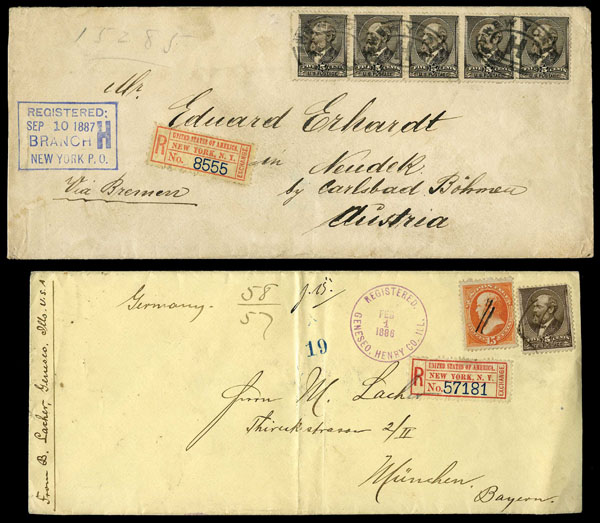 15285
Mr.
Eduard Erhardt
in Neudek
by Carlsbad Böhmen
Austria
Via Bremen
REGISTERED:
SEP 10 1887
BRANCH H
NEW YORK P.O.
UNITED STATES OF AMERICA.
R NEW YORK, N. Y. EXCHANGE
No. 8555
Germany.
58
57
19
REGISTERED,
FEB
1
1886
GENESEO, HENRY CO. ILL.
15
5
UNITED STATES OF AMERICA.
R NEW YORK, N. Y. EXCHANGE
No. 57181
Herrn M. Lacher
2/II
München.
Bayern.
From B. Lacher, Geneseo, Ills. U.S.A